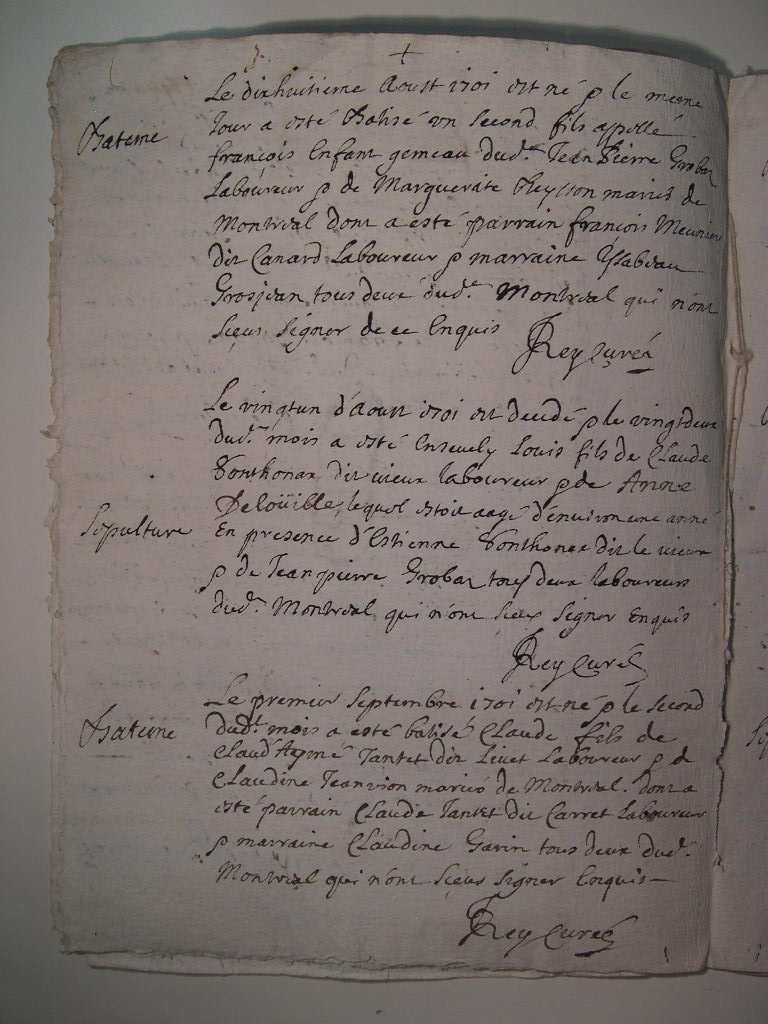 +
Bateme
Le dixhuitieme Aoust 1701 est né & le mesme
Jour a esté Batisé un second fils appellé
françois Enfant gemeau dud.t Jean Pierre Grobaz
Laboureur & de Marguerite mariés de
Montreal dont a esté parrain françois Meunier
dit Canard Laboureur & marraine Ysabeau
Grosjean tous deux dud.t Montreal qui n'ont
sçeus signer de ce Enquis
Rey Curé
Le vingtun d'Aoust 1701 est decedé & le vingtdeux
dud.t mois a esté Ensevely Louis fils de Claude
Ponthonax dit vieux laboureur & de Anne
Deloüille, lequel estoit aagé d'environ une anné
Sepulture
En presence d'Estienne Ponthonax dit le vieux
& de Jeanpierre Grobaz tous deux laboureurs
dud.t Montreal qui n'ont sçeus signer Enquis
Rey Curé
Bateme
Le premier septembre 1701 est né & le second
dud.t mois a esté batisé Claude fils de
Claud'Aymé Tantet dit Livet Laboureur & de
Claudine Jeanvion mariés de Montreal. dont a
esté parrain Claude Tantet dit Carret Laboureur
& marraine Claudine Gavin tous deux dud.t
Montreal qui n'ont sçeus signer Enquis
Rey Curé